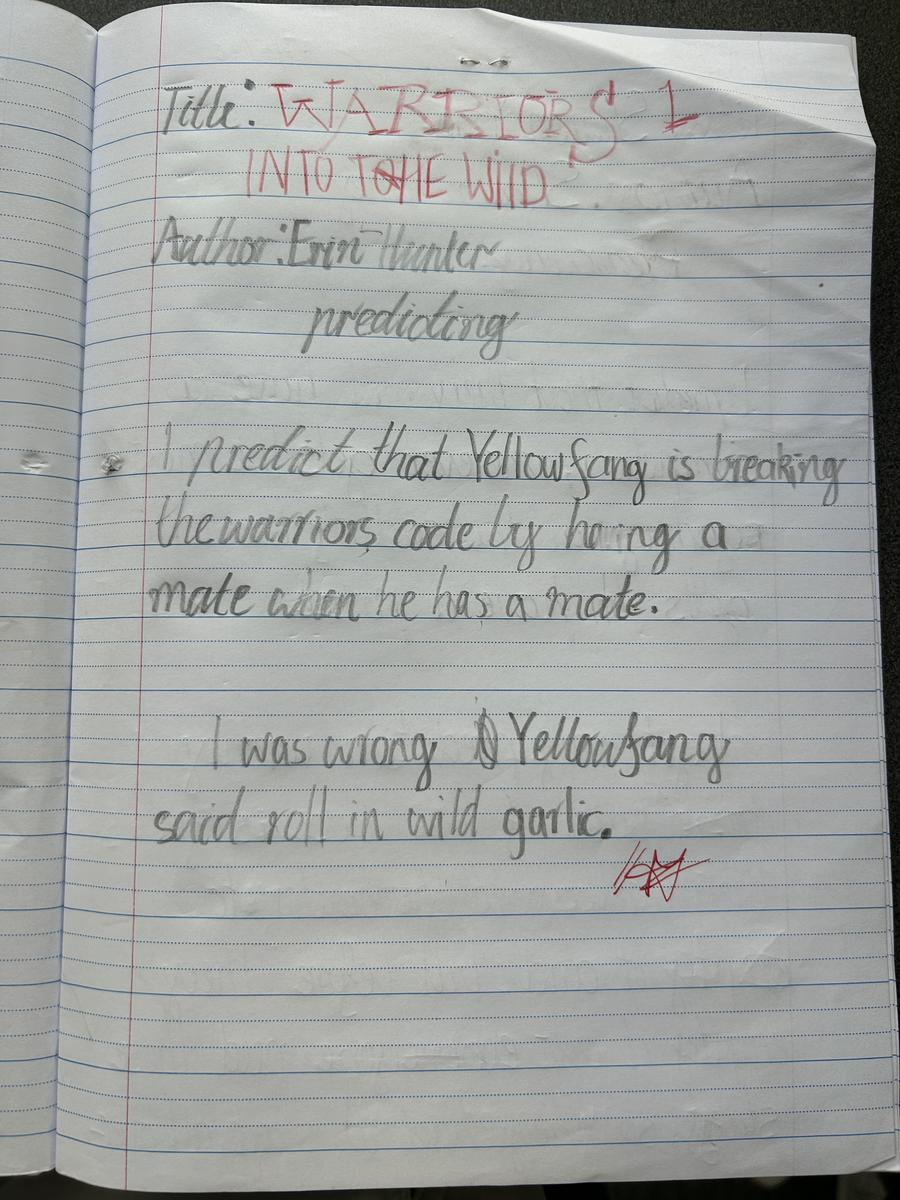 Title: WARRIORS 1
INTO THE WIlD
Author: Erin Hunter
predicting
I predict that Yellowfang is breaking
the warriors code by haing a
mate when he has a mate.
I was wrong Yellowfang
said roll in wild garlic.